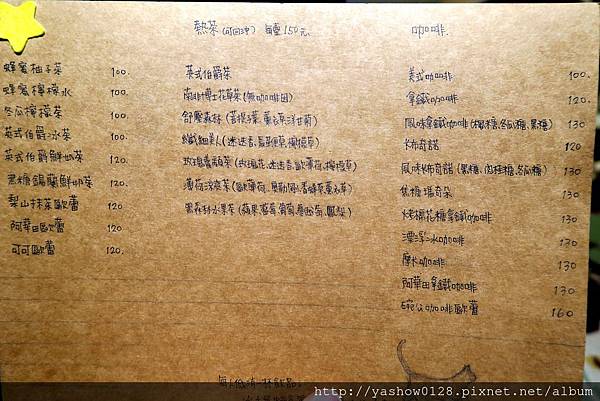 蜂蜜柚子茶 100.
蜂蜜檸檬水 100.
冬瓜檸檬茶 100.
英式伯爵冰茶 100.
英式伯爵鮮奶茶 120.
黑糖錫蘭鮮奶茶 120.
梨山抹茶歐蕾 120
阿華田歐蕾 120
可可歐蕾 120.
熱茶(可回沖) 每壺150元
英式伯爵茶
南非博士花草茶(無咖啡因)
舒壓森林(菩提葉、薰衣草、洋甘菊)
纖細美人(迷迭香、馬鞭草、檸檬草)
玫瑰養顏茶(玫瑰花、迷迭香、歐薄荷、檸檬草)
薄荷涼夜茶(歐薄荷、香蜂草、薰衣草)
黑森林水果茶(蘋果、藍莓、葡萄、鳳梨)
咖啡.
美式咖啡 100.
拿鐵咖啡 120.
風味拿鐵咖啡(楓糖、冬瓜糖、黑糖) 130
卡布奇諾 120
風味卡布奇諾(黑糖、肉桂糖、冬瓜糖) 130.
焦糖瑪奇朵 130
烤棉花糖拿鐵咖啡 130
漂浮冰咖啡 130
摩卡咖啡 130
阿華田拿鐵咖啡 130
咖啡歐蕾 160
每人低消一杯飲品
http://yashow0128.pixnet.net/album